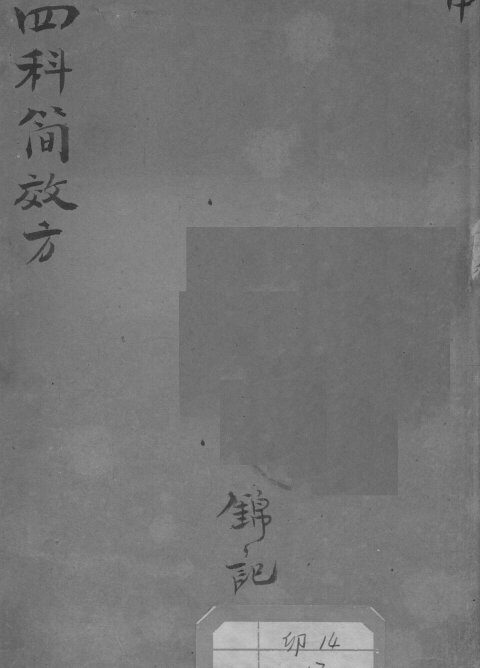 四科简效方
錦記
卯 14